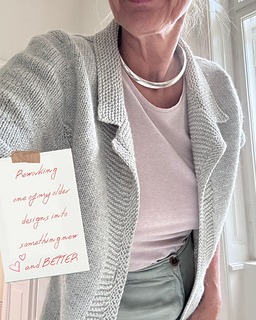 Reworking
one of my older
designs into
something new
and BETTER